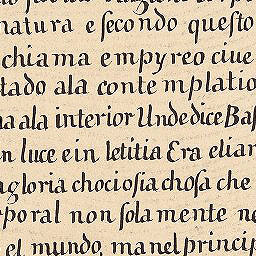 natura e ſecondo queſto
chiama empyreo ciue
tado ala contemplatio
ala interior Undedice Baſ
n luce e in letitia Era eliar
gloria chocioſia choſa che
rporal non ſolamente ne
el mundo, manel princip